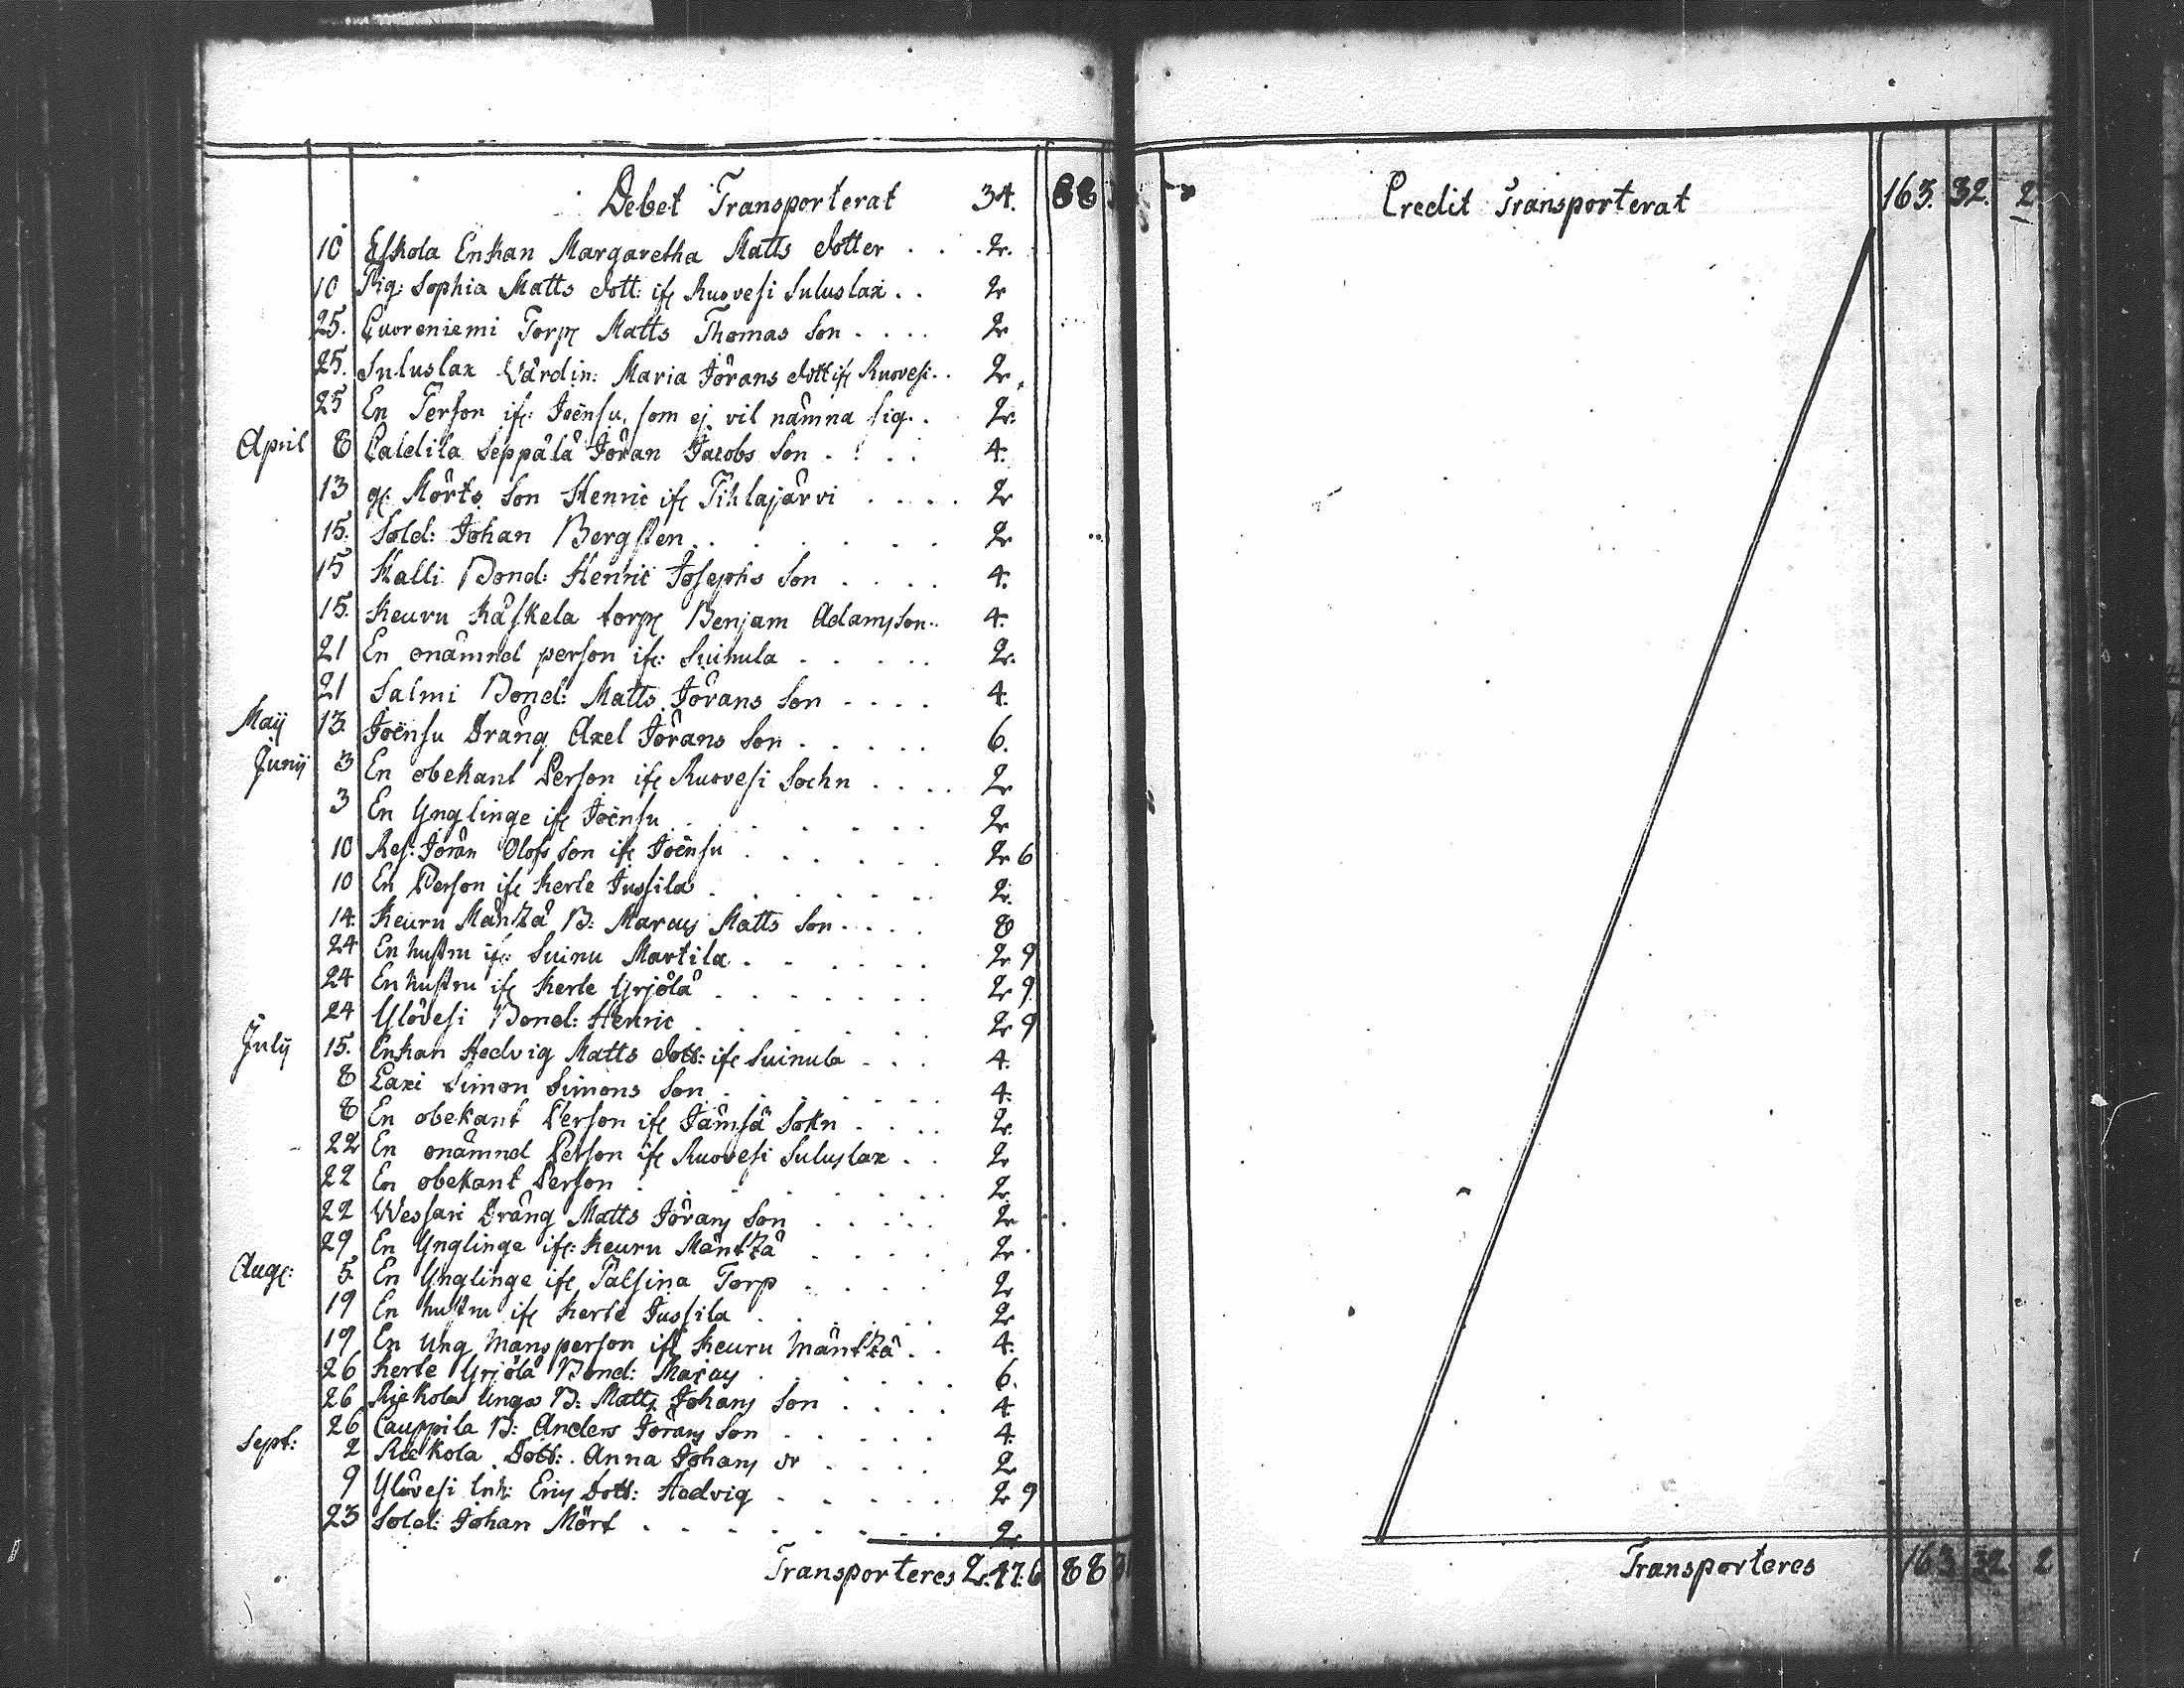 Debet Transporterat 34. 88
10 Eskola Enkan Margaretha Matts dotter . . . 2.
10 Pig: Sophia Matts dott: ifr Ruovesi Suluslax . . 2
25. Cuoreniemi Torp Matts Thomas Son . . . . 2
25. Suluslax Värdin: Maria Jörans dott ifr Ruovesi . . 2.
25 En Person ifr: Joënsu, som ej vil nämna sig . . 2.
April 8 Caldila Seppälä Jöran Jacobs Son . . . . 4.
13 gl: Mörts Son Henric ifr Pihlajärvi . . . . 2
15. Sold: Johan Bergsten . . . . . . 2
15 Kalli Bond: Henric Josephs Son . . . . 4.
15. Keuru Käskela torp Benjam Adamsson . . 4.
21 En onämnd person ifr: Suinula . . . . . 2.
21 Salmi Bond: Matts Jörans Son . . . . 4.
Maij 13. Joënsu Dräng Axel Jörans Son . . . . . 6.
Junij 3 En obekant Person ifr Ruovesi Sochn . . . . 2
3 En Ynglinge ifr Joënsu . . . . . . . 2
10 Res: Jöran Olofs Son ifr Joënsu . . . . . . 2 6
10 En Person ifr Kerte Jussila . . . . . . . 2.
14. Keuru Mäntzä B: Marcus Matts Son . . . . 8
24 En hustru ifr: Suinu Martila . . . . . . 2 9
24 En hustru ifr Kerte Yrjölä . . . . . . . 2 9.
24 Ylövesi Bond: Henric . . . . . . . 2 9
July 15. Enkan Hedvig Matts dott: ifr Suinula . . . 4.
8 Laxi Simon Simons Son . . . . . . 4.
8 En obekant Person ifr Jämsä Sokn . . . . 2.
22 En onämnd Person ifr Ruovesi Suluslax . . 2
22 En obekant Person . . . . . . . . 2
22 Wessari Dräng Matts Jörans Son . . . . . 2
29 En Ynglinge ifr: Keuru Mäntzä . . . . 2.
Aug: 5. En Ynglinge ifr Palsina Torp . . . . 2
19 En hustru ifr Kerte Jussila . . . . . 2
19 En ung Mansperson ifr Keuru Mäntzä . . 4.
26 Kerte Yrjölä Bond: Marcus . . . . . . 6.
26 Riekola Unga B: Matts Johans Son . . . . 4
26 Cauppila B: Anders Jörans Son . . . . . 4.
Sept: 2 Riekola Dott: Anna Johans dr . . . . 2
9 Ylövesi Enk: Erics Dott: Hedvig . . . . . 2 9
23 Sold: Johan Mört . . . . . . . . 2
Transporteres 2. 47. 6 88
Credit Transporterat 163. 32. 2
Transporteres 163 32 2